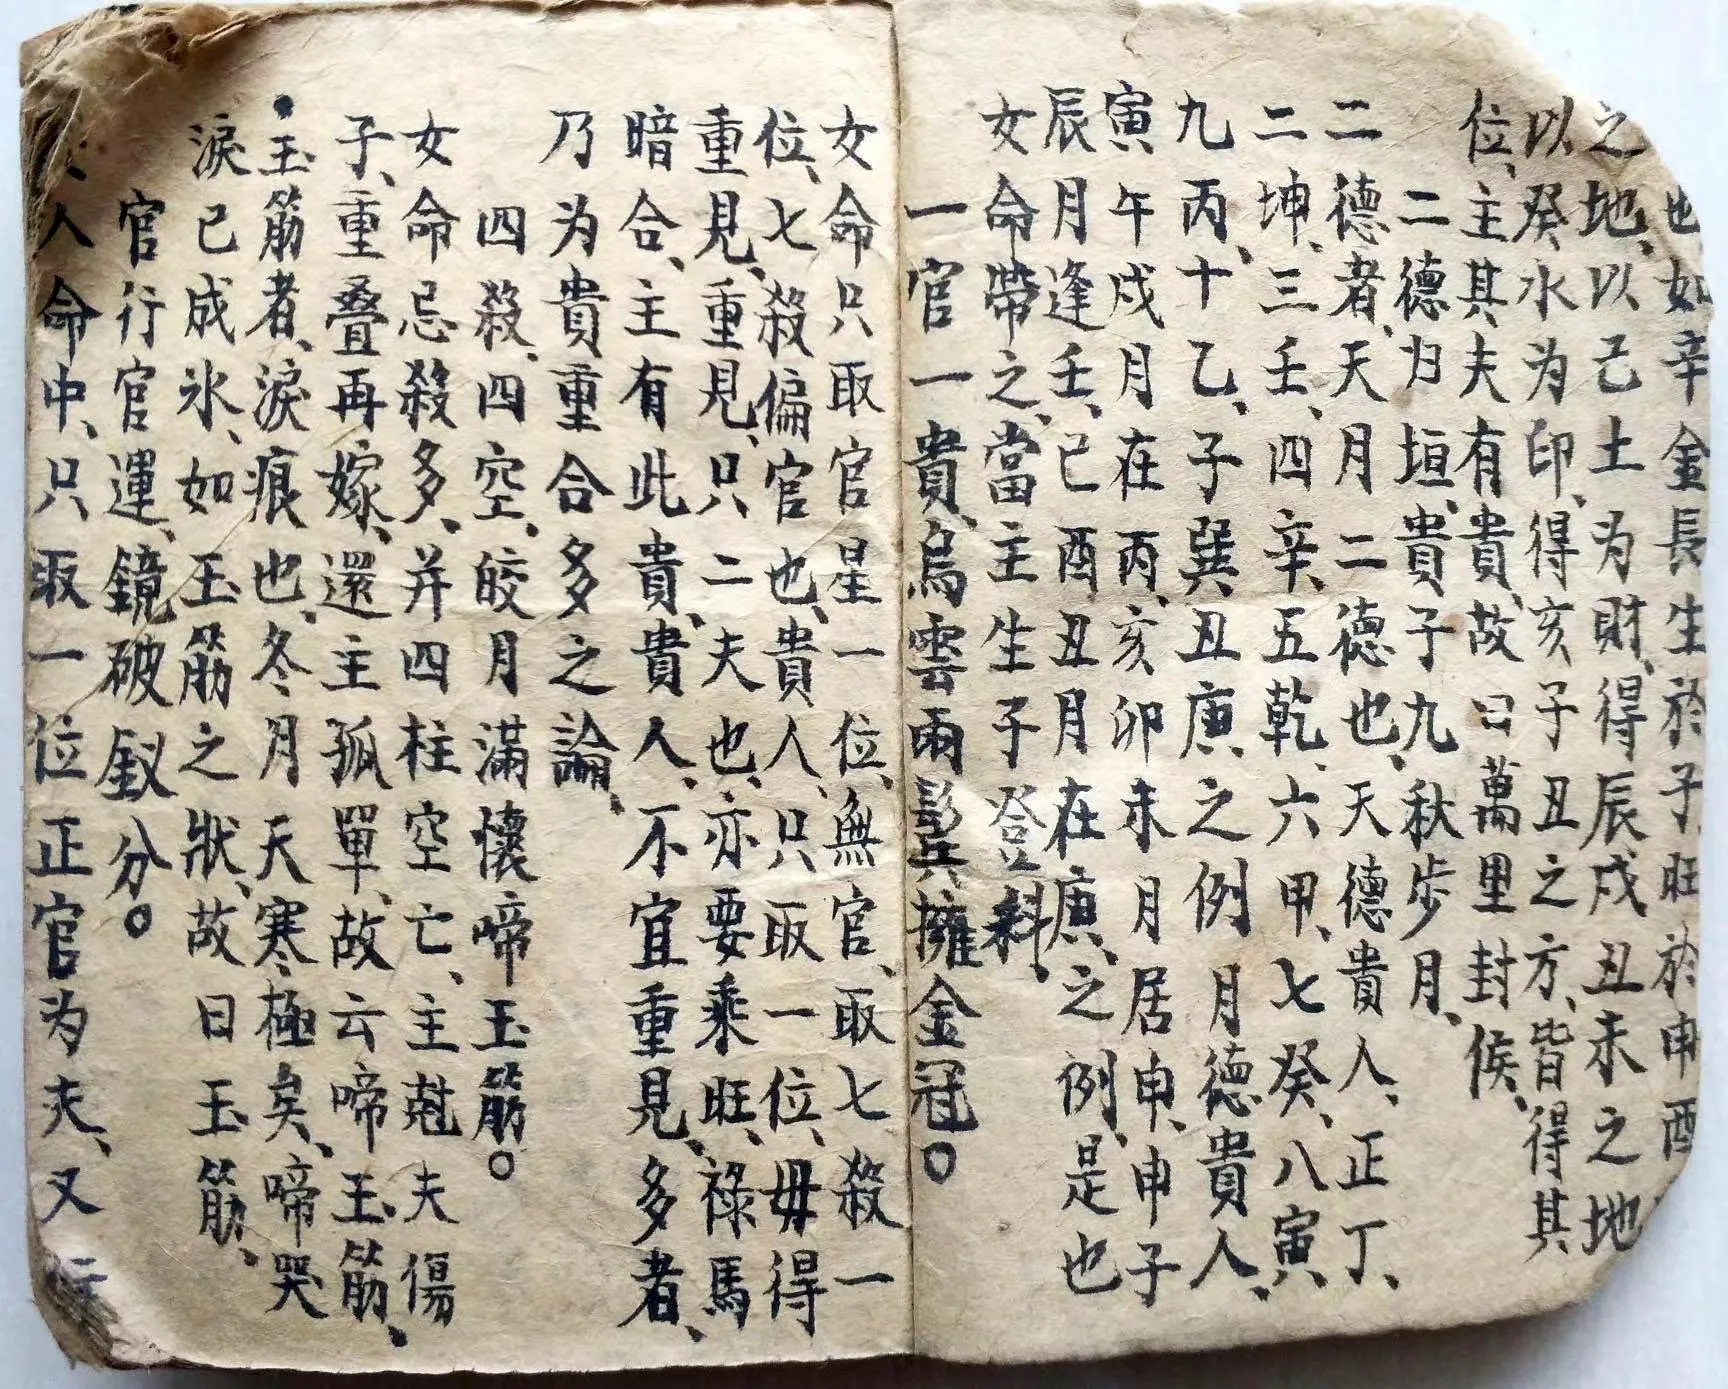 也、如辛金長生於子、旺於申酉
之地、以己土为財、得辰戌丑未之地
以癸水为印、得亥子丑之方、皆得其
位、主其夫有貴、故曰萬里封侯、
二德归垣、貴子九秋步月、
二德者、天月二德也、天德貴人、正丁、
二坤、三壬、四辛、五乾、六甲、七癸、八寅、
九丙、十乙、子巽丑庚、之例月德貴人、
寅午戌月在丙、亥卯未月居申、申子
辰月逢壬、已酉丑月在庚、之例、是也
女命帶之、當主生子登科、
一官一貴、烏雲兩鬂擁金冠。
女命只取官星一位、無官、取七殺一
位、七殺偏官也、貴人、只取一位、毋得
重見、重見、只二夫也、亦要乘旺、禄馬
暗合、主有此貴、貴人、不宜重見、多者、
乃为貴重合多之論、
四殺、四空、皎月滿懷啼玉筋。
女命忌殺多、并四柱空亡、主尅夫傷
子、重叠再嫁、還主孤單、故云啼玉筋、
玉筋者、淚痕也、冬月天寒極矣、啼哭
淚已成氷、如玉筋之狀、故曰玉筋、
官行官運、鏡破釵分。
人命中、只取一位正官为夫、又